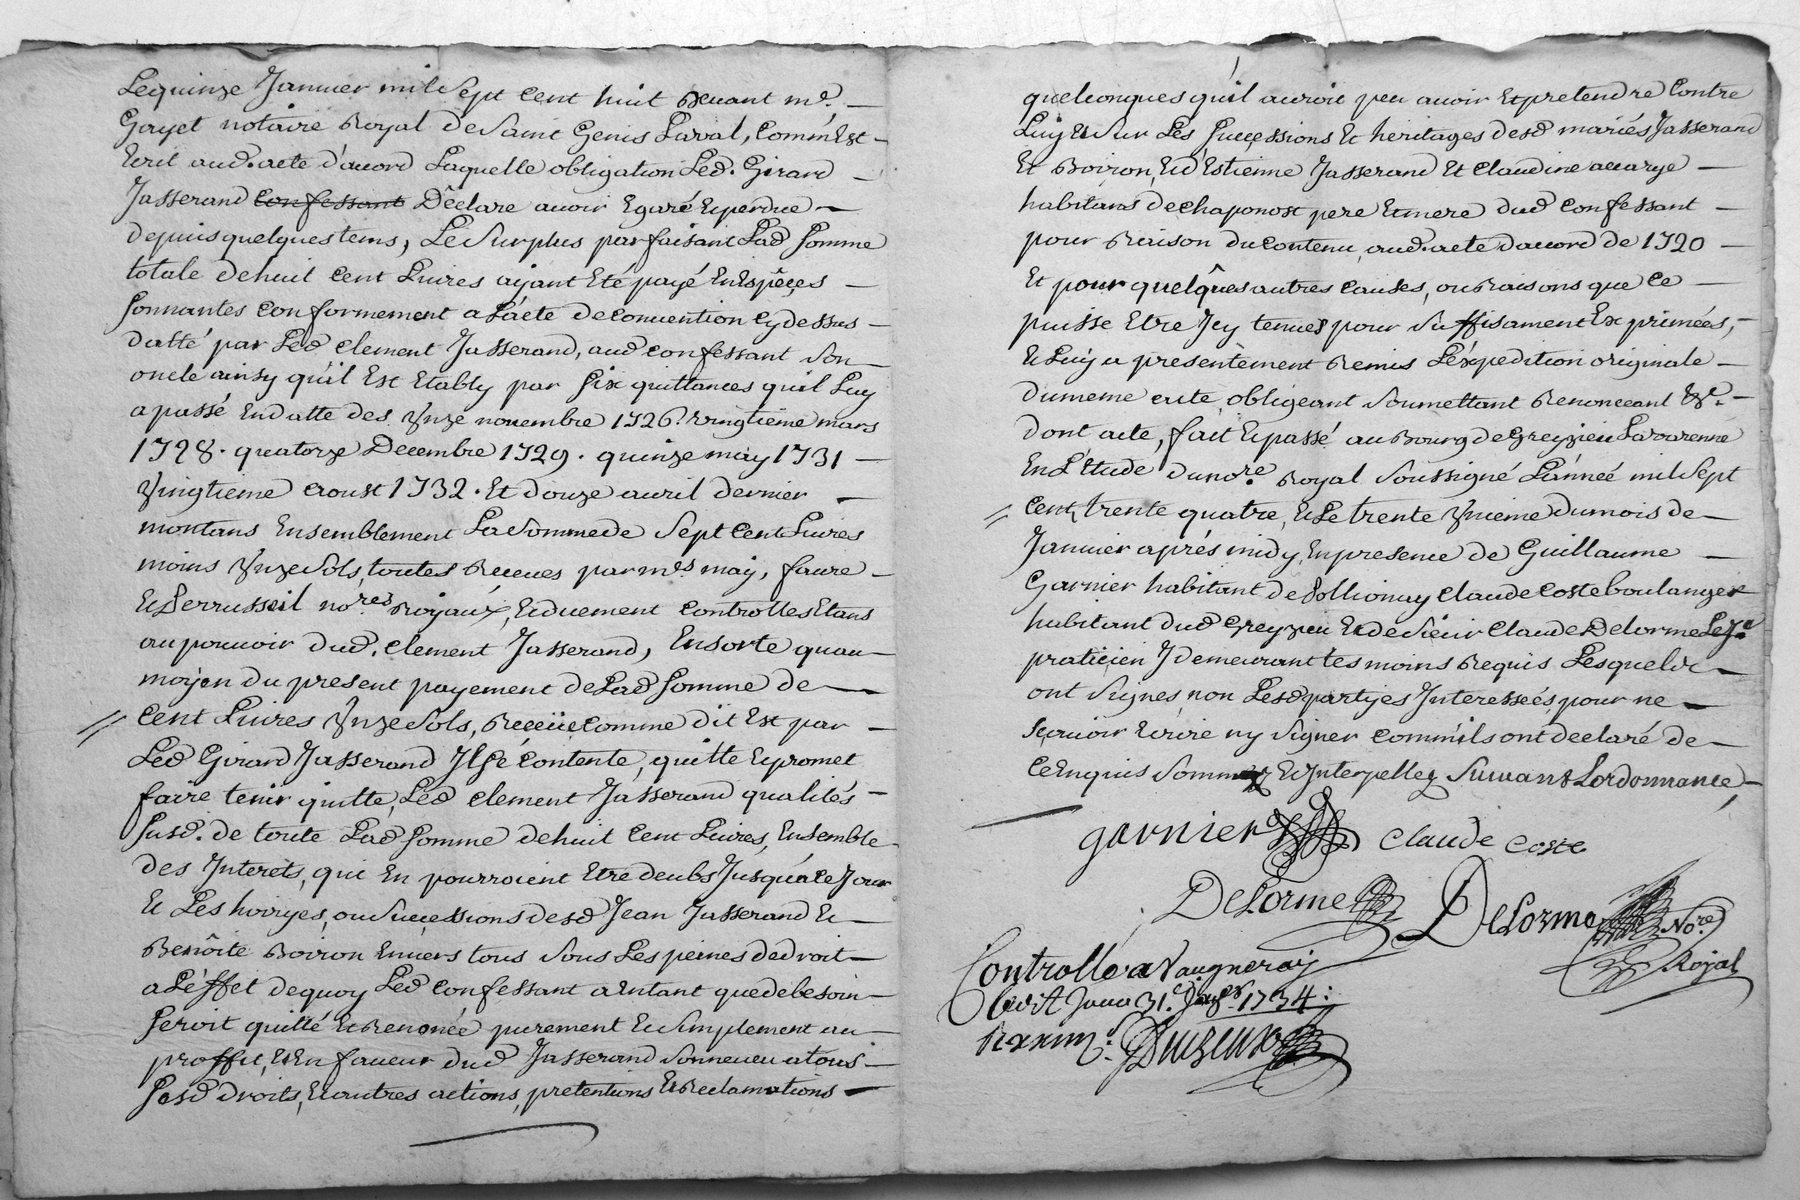 Le quinze Janvier mil Sept cent huit devant me.
Gayet notaire Royal de Saint Genis Laval, comm'Est
Ecrit aud. acte d'acord Laquelle obligation Led. Girard
Jasserand confessant Déclare avoir Egaré Eperdue
depuis quelques tems, Le Surplus parfaisant Lad somme
totale de huit cent Livres ayant Eté payé En Espêces
sonnantes conformement a L'acte de convention cy dessus
datté par Led clement Jasserand, aud confessant Son
oncle ainsy qu'il Est Etably par six quittances qu'il Luy
a passé En datte des Unze novembre 1726. vingtième mars
1728. quatorze Decembre 1729. quinze may 1731
Vingtieme aoust 1732. Et douze avril dernier
montans Ensemblement La Somme de Sept Cent Livres
moins Unze Sols, toutes Receues par mes may, favre
Et Perrusseil nores Royaux, Et duement controllés Etans
au pouvoir dud. clement Jasserand, En sorte qu'au
moyen du present payement de Lad somme de
cent Livres Unze Sols, Receüe comme dit Est par
Led Girard Jasserand Il se contente, quitte Et promet
faire tenir quitte, Led clement Jasserand qualités
susd. de toute Lad somme de huit cent Livres, Ensemble
des Interets, qui En pourroient Etre deubs Jusqu'à ce Jour
Et Les hoiryes, ou Successions desd Jean Jasserand Et
Benôite Boiron Envers tous Sous Les peines de droit
a L'éffet de quoy Led confessant a Entant que de besoin
seroit quitté Et Renoncé purement Et Simplement au
proffit, Et En faveur dud Jasserand Son neveu a tous
sesd droits, Et autres actions, pretentions Et Reclamations
quelconques qu'il auroit peu avoir Et pretendre Contre
Luy Et Sur Les Successions Et heritages desd mariés Jasserand
Et Boiron, Et d'Estienne Jasserand Et Claudine accarye
habitans de chaponost pere Et mere dud confessant
pour Raison du contenu aud. acte d'acord de 1720
Et pour quelques autres causes, ou Raisons que ce
puisse Etre Icy tenues pour Suffisament Exprimées,
Et Luy a presentement Remis L'éxpedition originale
du meme acte, obligeant Soumettant Renonceant &c.
dont acte, fait Et passé au Bourg de Greyzieu Lavarenne
En L'étude du nore. Royal Soussigné L'année mil Sept
cent, trente quatre, Et Le trente Unieme du mois de
Janvier aprés midy, En presence de Guillaume
Garnier habitant de Vollionnay Claude Coste boulanger
habitant dud Greyzieu Et de Sieur Claude Delorme Le Je.
praticien Y demeurant tesmoins Requis Lesquels
ont Signes, non Lesd partyes Interessées, pour ne
sçavoir Ecrire ny Signer comm'ils ont declaré de
ce Enquis Sommez Et Interpellez Suivant Lordonnance,
garnier Claude Coste
Delorme Delorme Nore.
Royal
Controllé a Vaugneray
31e. 1734: